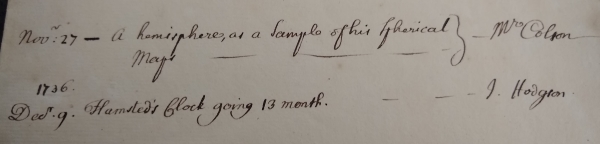 Novr. 27 — A hemisphere, as a Sample of his Spherical } — Mr. Colson
Maps — — —
1736.
Decr. 9. Hamsted's Clock going 13 month. — — J. Hodgson.